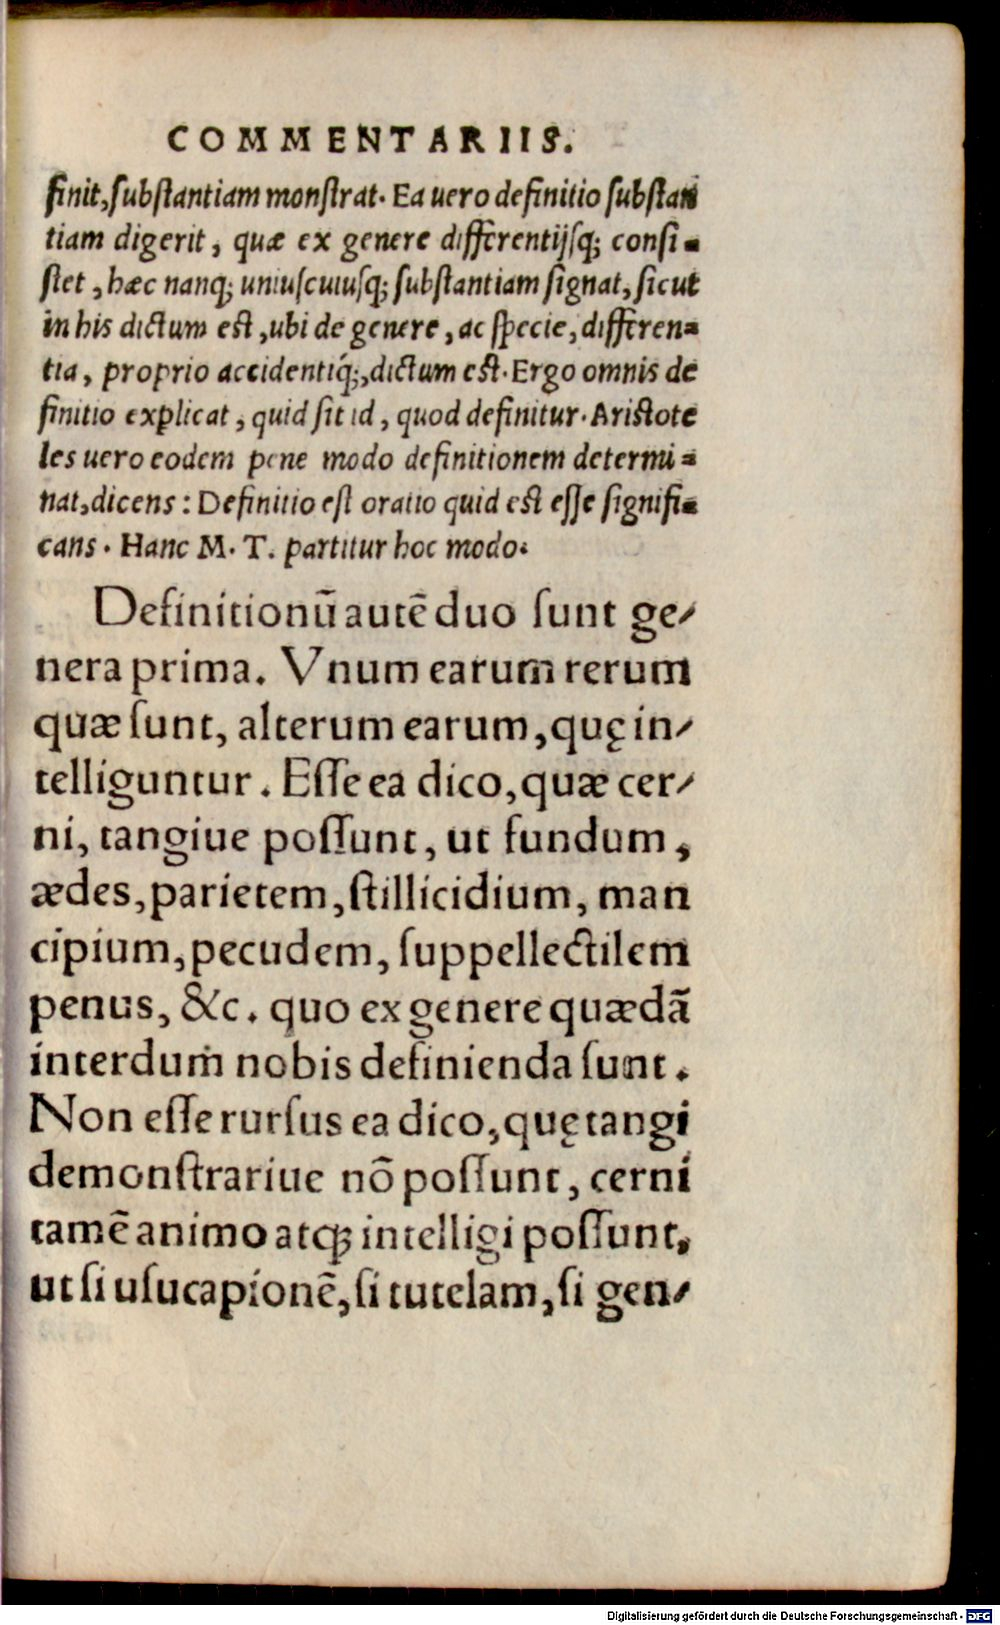 COMMENTARIIS.
finit, ſubſtantiam monſtrat. Ea uero definitio ſubſtan
tiam digerit, quæ ex genere differentijſq; conſi-
ſtet, hæc nanq; uniuſcuiuſq; ſubſtantiam ſignat, ſicut
in his dictum eſt, ubi de genere, ac ſpecie, differen-
tia, proprio accidentiq́;, dictum eſt. Ergo omnis de
finitio explicat, quid ſit id, quod definitur. Ariſtote
les uero eodem pene modo definitionem determi-
nat, dicens: Definitio eſt oratio quid eſt eſſe ſignifi-
cans. Hanc M. T. partitur hoc modo.
Definitionū autē duo ſunt ge-
nera prima. Vnum earum rerum
quæ ſunt, alterum earum, quę in-
telliguntur. Eſſe ea dico, quæ cer-
ni, tangiue poſſunt, ut fundum,
ædes, parietem, ſtillicidium, man
cipium, pecudem, ſuppellectilem
penus, &c. quo ex genere quædā
interdum nobis definienda ſunt.
Non eſſe rurſus ea dico, quę tangi
demonſtrariue nō poſſunt, cerni
tamē animo atq; intelligi poſſunt,
ut ſi uſucapionē, ſi tutelam, ſi gen-
Digitalisierung gefördert durch die Deutsche Forschungsgemeinschaft - DFG